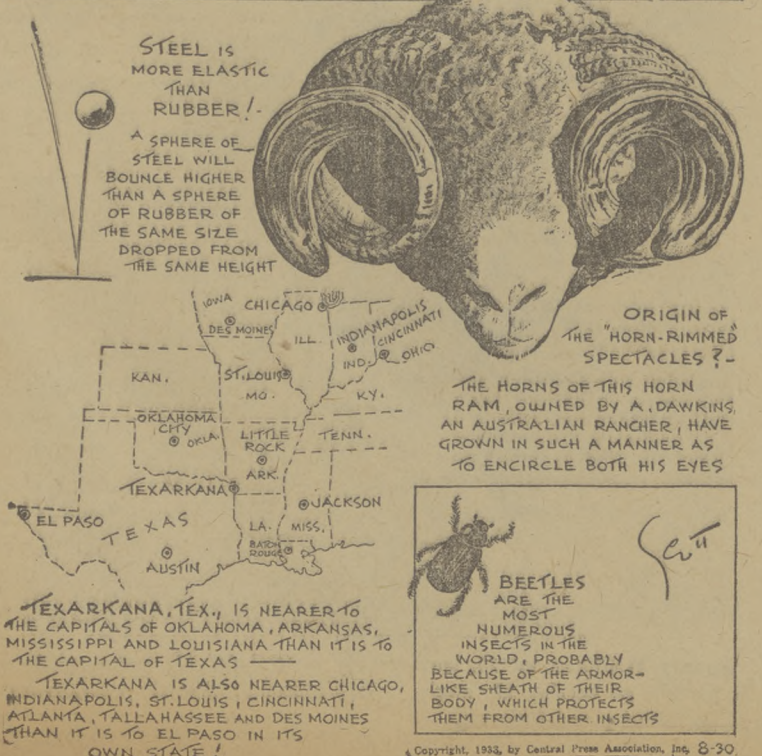 STEEL IS
MORE ELASTIC
THAN
RUBBER!-
A SPHERE OF
STEEL WILL
BOUNCE HIGHER
THAN A SPHERE
OF RUBBER OF
THE SAME SIZE
DROPPED FROM
THE SAME HEIGHT
ORIGIN OF
THE "HORN-RIMMED"
SPECTACLES?-
THE HORNS OF THIS HORN
RAM, OWNED BY A. DAWKINS,
AN AUSTRALIAN RANCHER, HAVE
GROWN IN SUCH A MANNER AS
TO ENCIRCLE BOTH HIS EYES
IOWA
CHICAGO
DES MOINES
ILL.
INDIANAPOLIS
CINCINNATI
IND.
OHIO
KAN.
ST. LOUIS
MO.
KY.
OKLAHOMA
CITY
OKLA.
LITTLE
ROCK
ARK.
TENN.
TEXARKANA
JACKSON
EL PASO
TEXAS
LA.
MISS.
BATON
ROUGE
AUSTIN
TEXARKANA, TEX., IS NEARER TO
THE CAPITALS OF OKLAHOMA, ARKANSAS,
MISSISSIPPI AND LOUISIANA THAN IT IS TO
THE CAPITAL OF TEXAS —
TEXARKANA IS ALSO NEARER CHICAGO,
INDIANAPOLIS, ST. LOUIS, CINCINNATI,
ATLANTA, TALLAHASSEE AND DES MOINES
THAN IT IS TO EL PASO IN ITS
OWN STATE!
SCOTT
BEETLES
ARE THE
MOST
NUMEROUS
INSECTS IN THE
WORLD, PROBABLY
BECAUSE OF THE ARMOR-
LIKE SHEATH OF THEIR
BODY, WHICH PROTECTS
THEM FROM OTHER INSECTS
Copyright, 1933, by Central Press Association, Inc. 8-30